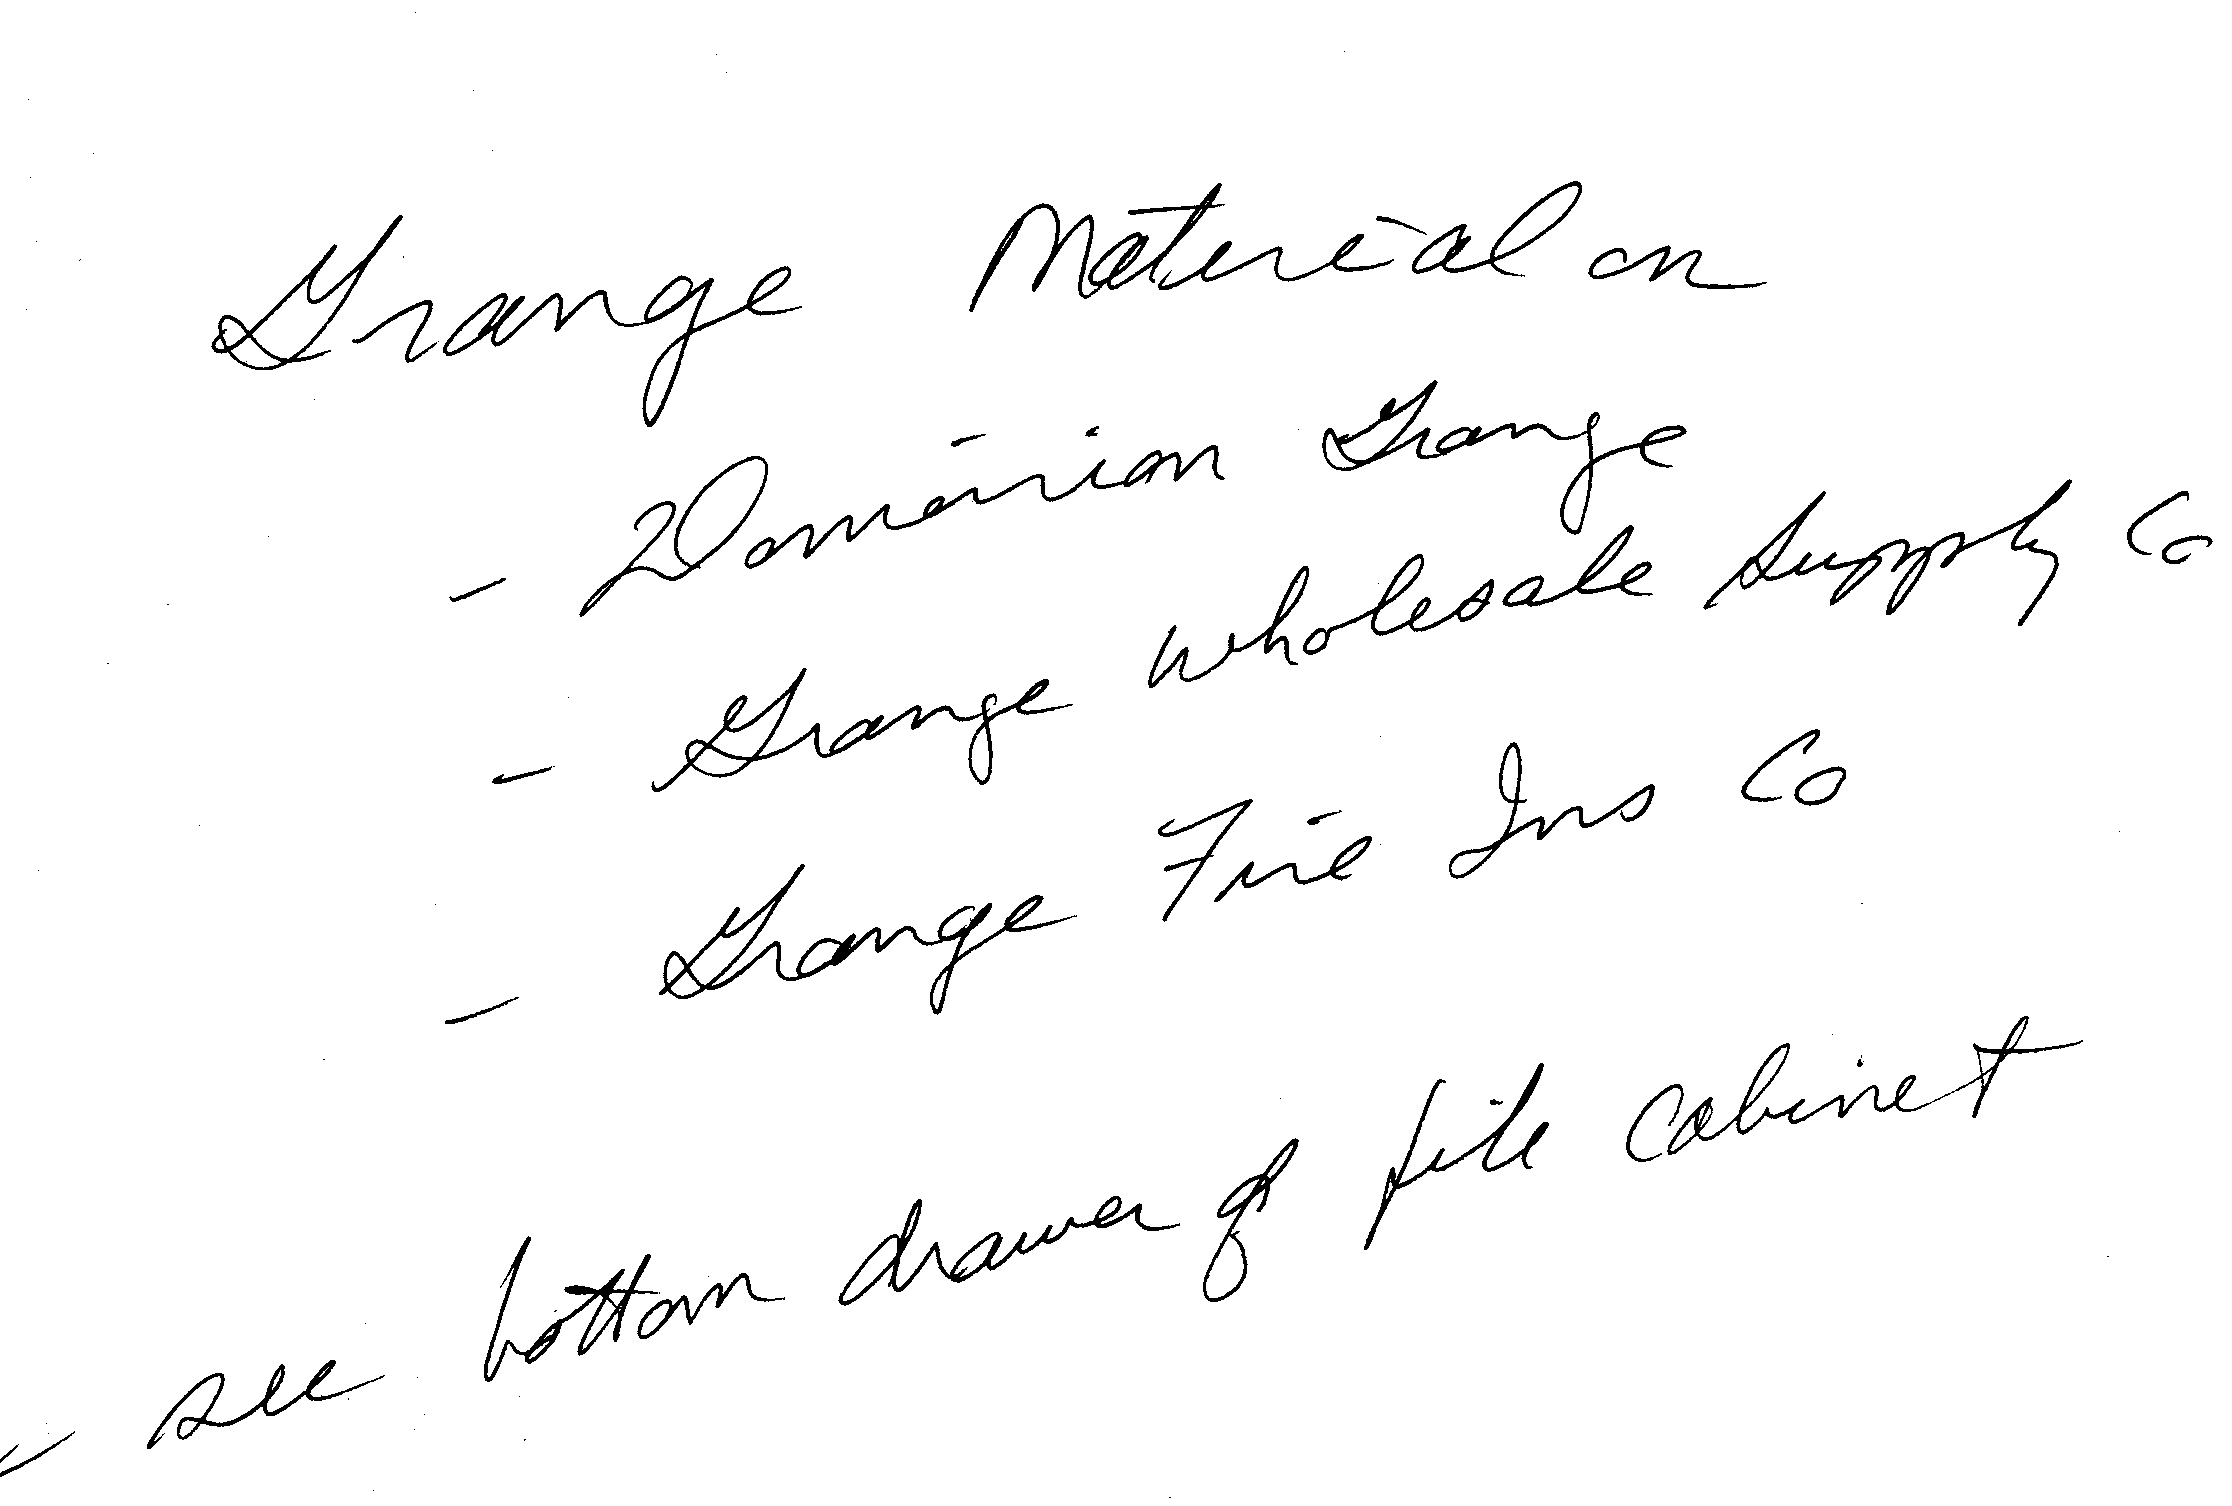 Grange Material on
- Dominion Grange
- Grange Wholesale Supply Co
- Grange Fire Ins Co
- see bottom drawer of file cabinet